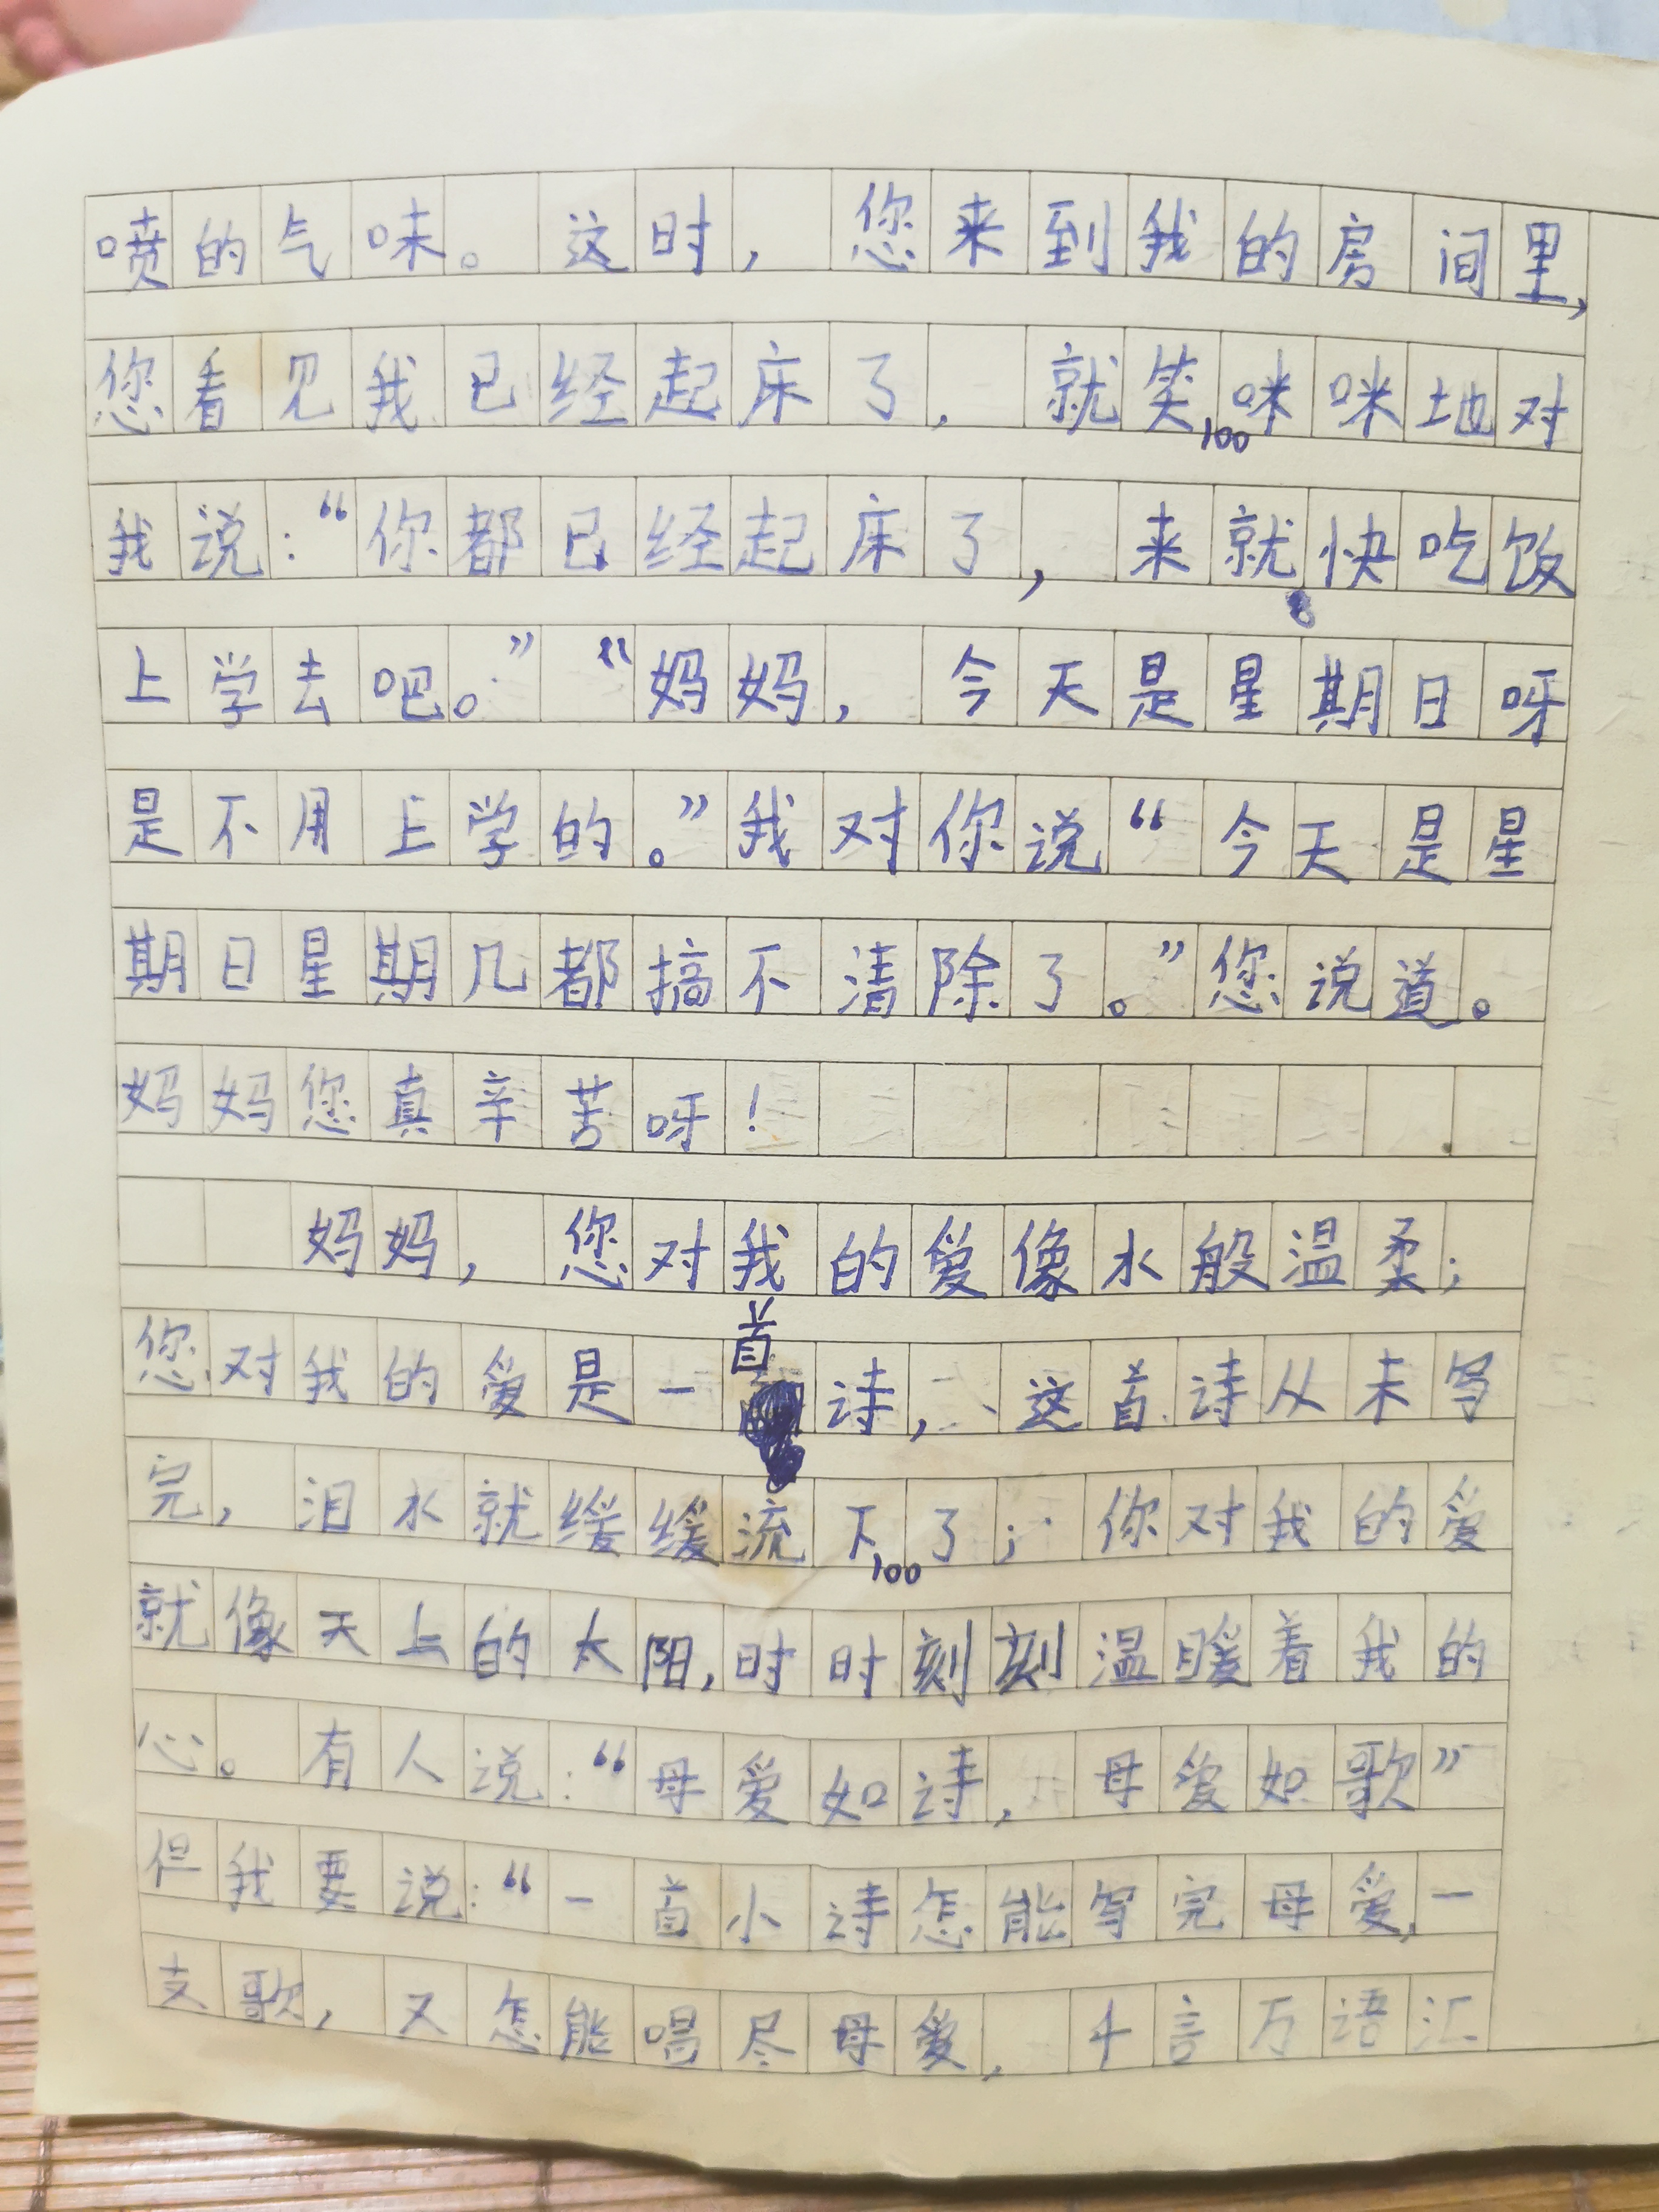 喷的气味。这时，您来到我的房间里，
您看见我已经起床了，就笑咪咪地对
100
我说：“你都已经起床了，来就快吃饭
上学去吧。”“妈妈，今天是星期日呀
是不用上学的。”我对你说“今天是星
期日星期几都搞不清除了。”您说道。
妈妈您真辛苦呀！
妈妈，您对我的爱像水般温柔；
您对我的爱是一首诗，这首诗从未写
完，泪水就缓缓流下了；你对我的爱
100
就像天上的太阳，时时刻刻温暖着我的
心。有人说：“母爱如诗，母爱如歌”
但我要说：“一首小诗怎能写完母爱，一
支歌，又怎能唱尽母爱，千言万语汇